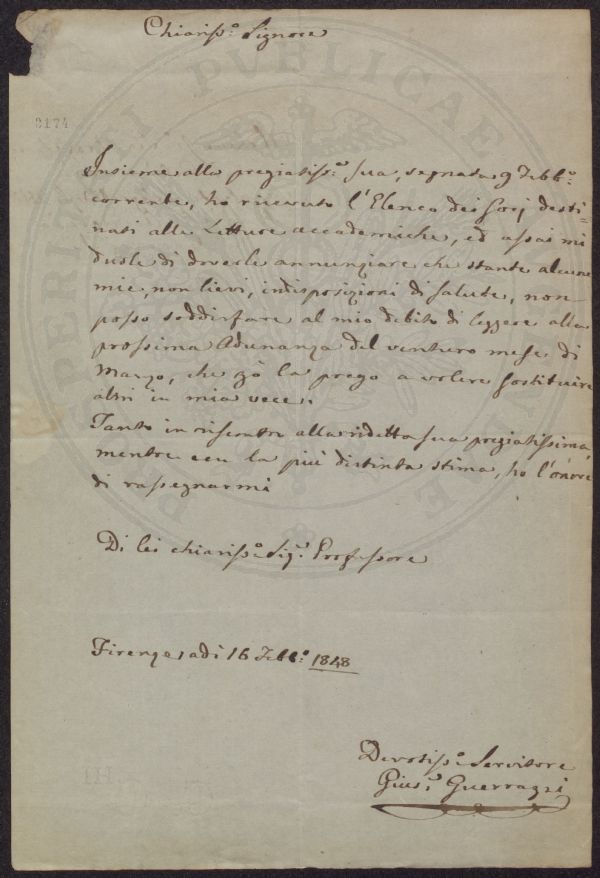 Chiariss.o Signore
3174
Insieme alla pregiatiss.a sua, segnata 9 Febb.o
corrente, ho ricevuto l'Elenco dei Socj desti-
nati alle Letture accademiche, ed assai mi
duole di doverle annunziare che stante alcune
mie, non lievi, indisposizioni di salute, non
posso soddisfare al mio debito di leggere alla
prossima Adunanza del venturo mese di
Marzo, che già la prego a volere sostituire
altri in mia vece.
Tanto in riscontro alla ridetta sua pregiatissima,
mentre con la più distinta stima, ho l'onore
di rassegnarmi
Di lei chiariss.o Sig.r Professore
Firenze, adì 16 Febb.o 1848
Devotiss.o Servitore
Gius.e Guerrazzi